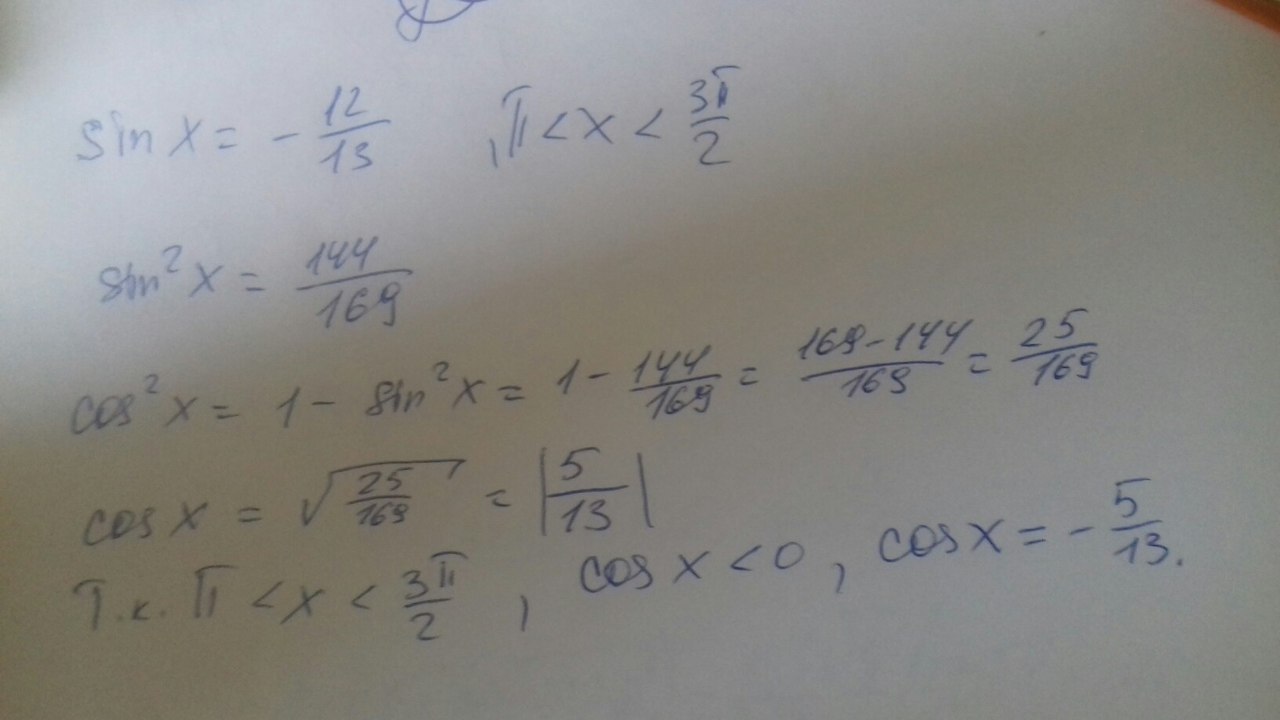 sin x = - 12/13 , π < x < 3π/2
sin² x = 144/169
cos² x = 1 - sin² x = 1 - 144/169 = 169-144/169 = 25/169
cos x = √25/169 = |5/13|
Т.к. π < x < 3π/2 , cos x < 0 , cos x = - 5/13.